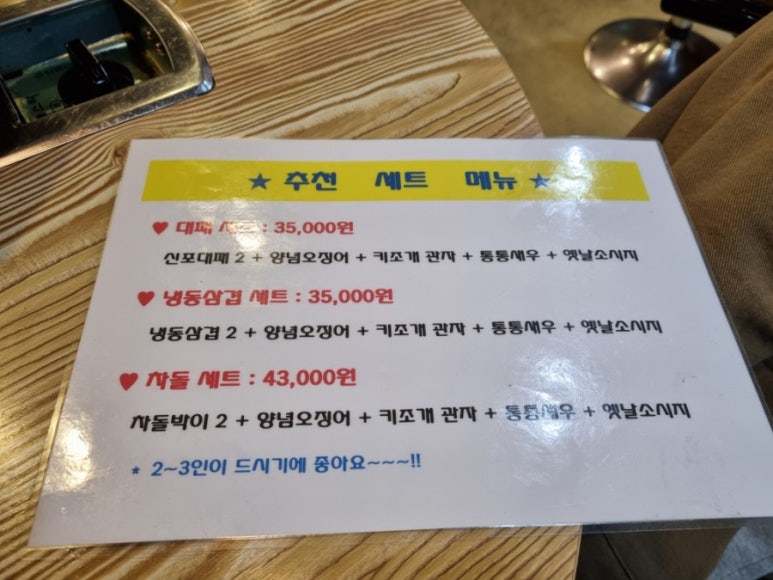 ★ 추천 세트 메뉴 ★
♥ 대패 세트 : 35,000원
신포대패 2 + 양념오징어 + 키조개 관자 + 통통새우 + 옛날소시지
♥ 냉동삼겹 세트 : 35,000원
냉동삼겹 2 + 양념오징어 + 키조개 관자 + 통통새우 + 옛날소시지
♥ 차돌 세트 : 43,000원
차돌박이 2 + 양념오징어 + 키조개 관자 + 통통새우 + 옛날소시지
* 2~3인이 드시기에 좋아요~~~!!